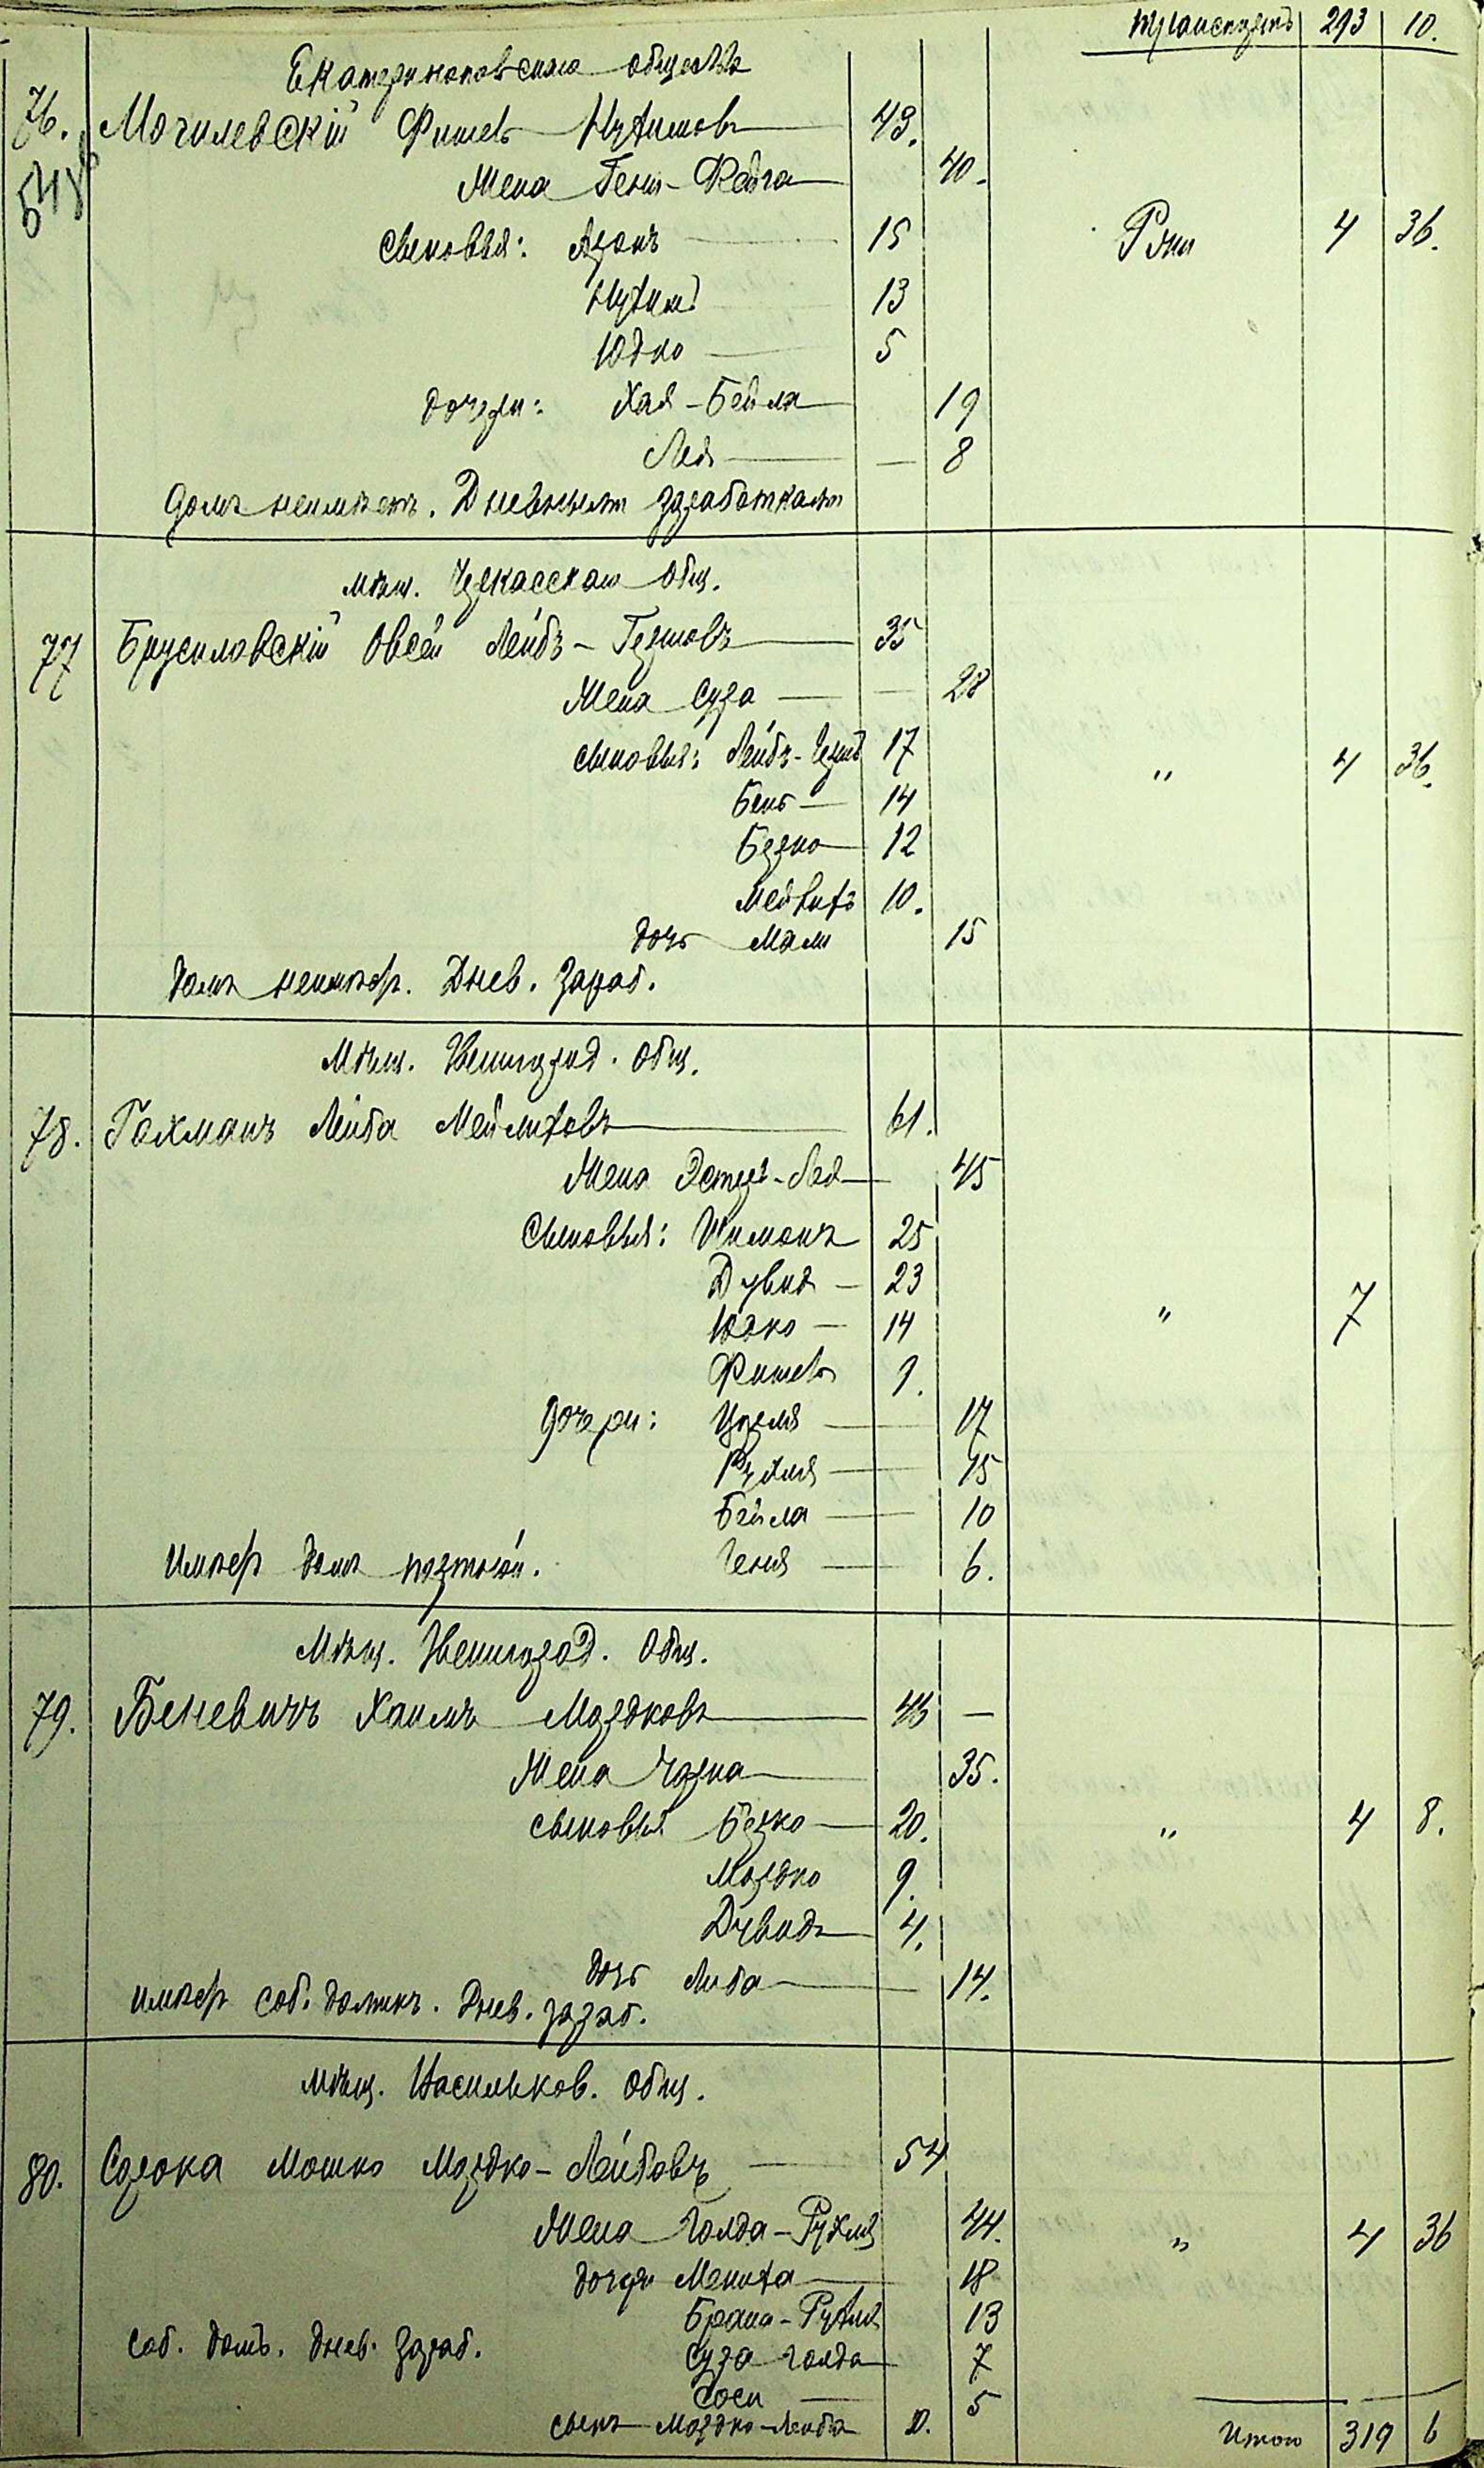 Транспортъ 293 10.
Екатеринопольскаго общества
76. Могилевскій Фишель Нухимовъ 43.
548
Жена Геня-Фейга 40.
Сыновья: Аронъ 15 4 36.
Нухимъ 13
Юдко 5
дочери: Хая-Бейла 19
Лея — 8
Домъ неимѣетъ. Дневнымъ заработкамъ
мѣщ. Черкасскаго Общ.
77 Брусиловскій Овсей Лейбъ-Гершовъ 35
Жена Сура 28
Сыновья: Лейбъ- 17 " 4 36.
14
Берко 12
10.
дочь 15
домъ неимѣетъ. Днев. Зараб.
Мѣщ. Звенигород. Общ.
78. Гохманъ Лейба Мейлиховъ 61.
Жена Эстеръ-Лея 45
Сыновья: Шимонъ 25
Дувидъ — 23
Юдко — 14 " 7
Фишель 9.
Дочери: 17
Рухля 15
Бейла 10
Геня 6.
Имѣетъ домъ
Мѣщ. Звенигород. Общ.
79. Беневичъ Хаимъ Мордковъ 43 —
Жена Чарна 35.
Сыновья Берко 20. " 4 8.
Мордко 9.
Дувидъ 4.
дочь Либа 14.
имѣетъ соб. домикъ. Днев. зараб.
мѣщ. Васильков. Общ.
80. Сорока Мошко Мордко-Лейбовъ 54
Жена Голда-Рухля 44. " 4 36
дочери Мениха 18
Брана-Рухля 13
Соб. домъ. Днев. Зараб. Сура Голда 7
Соси 5
сынъ Мордко-Лейба
Итого 319 6